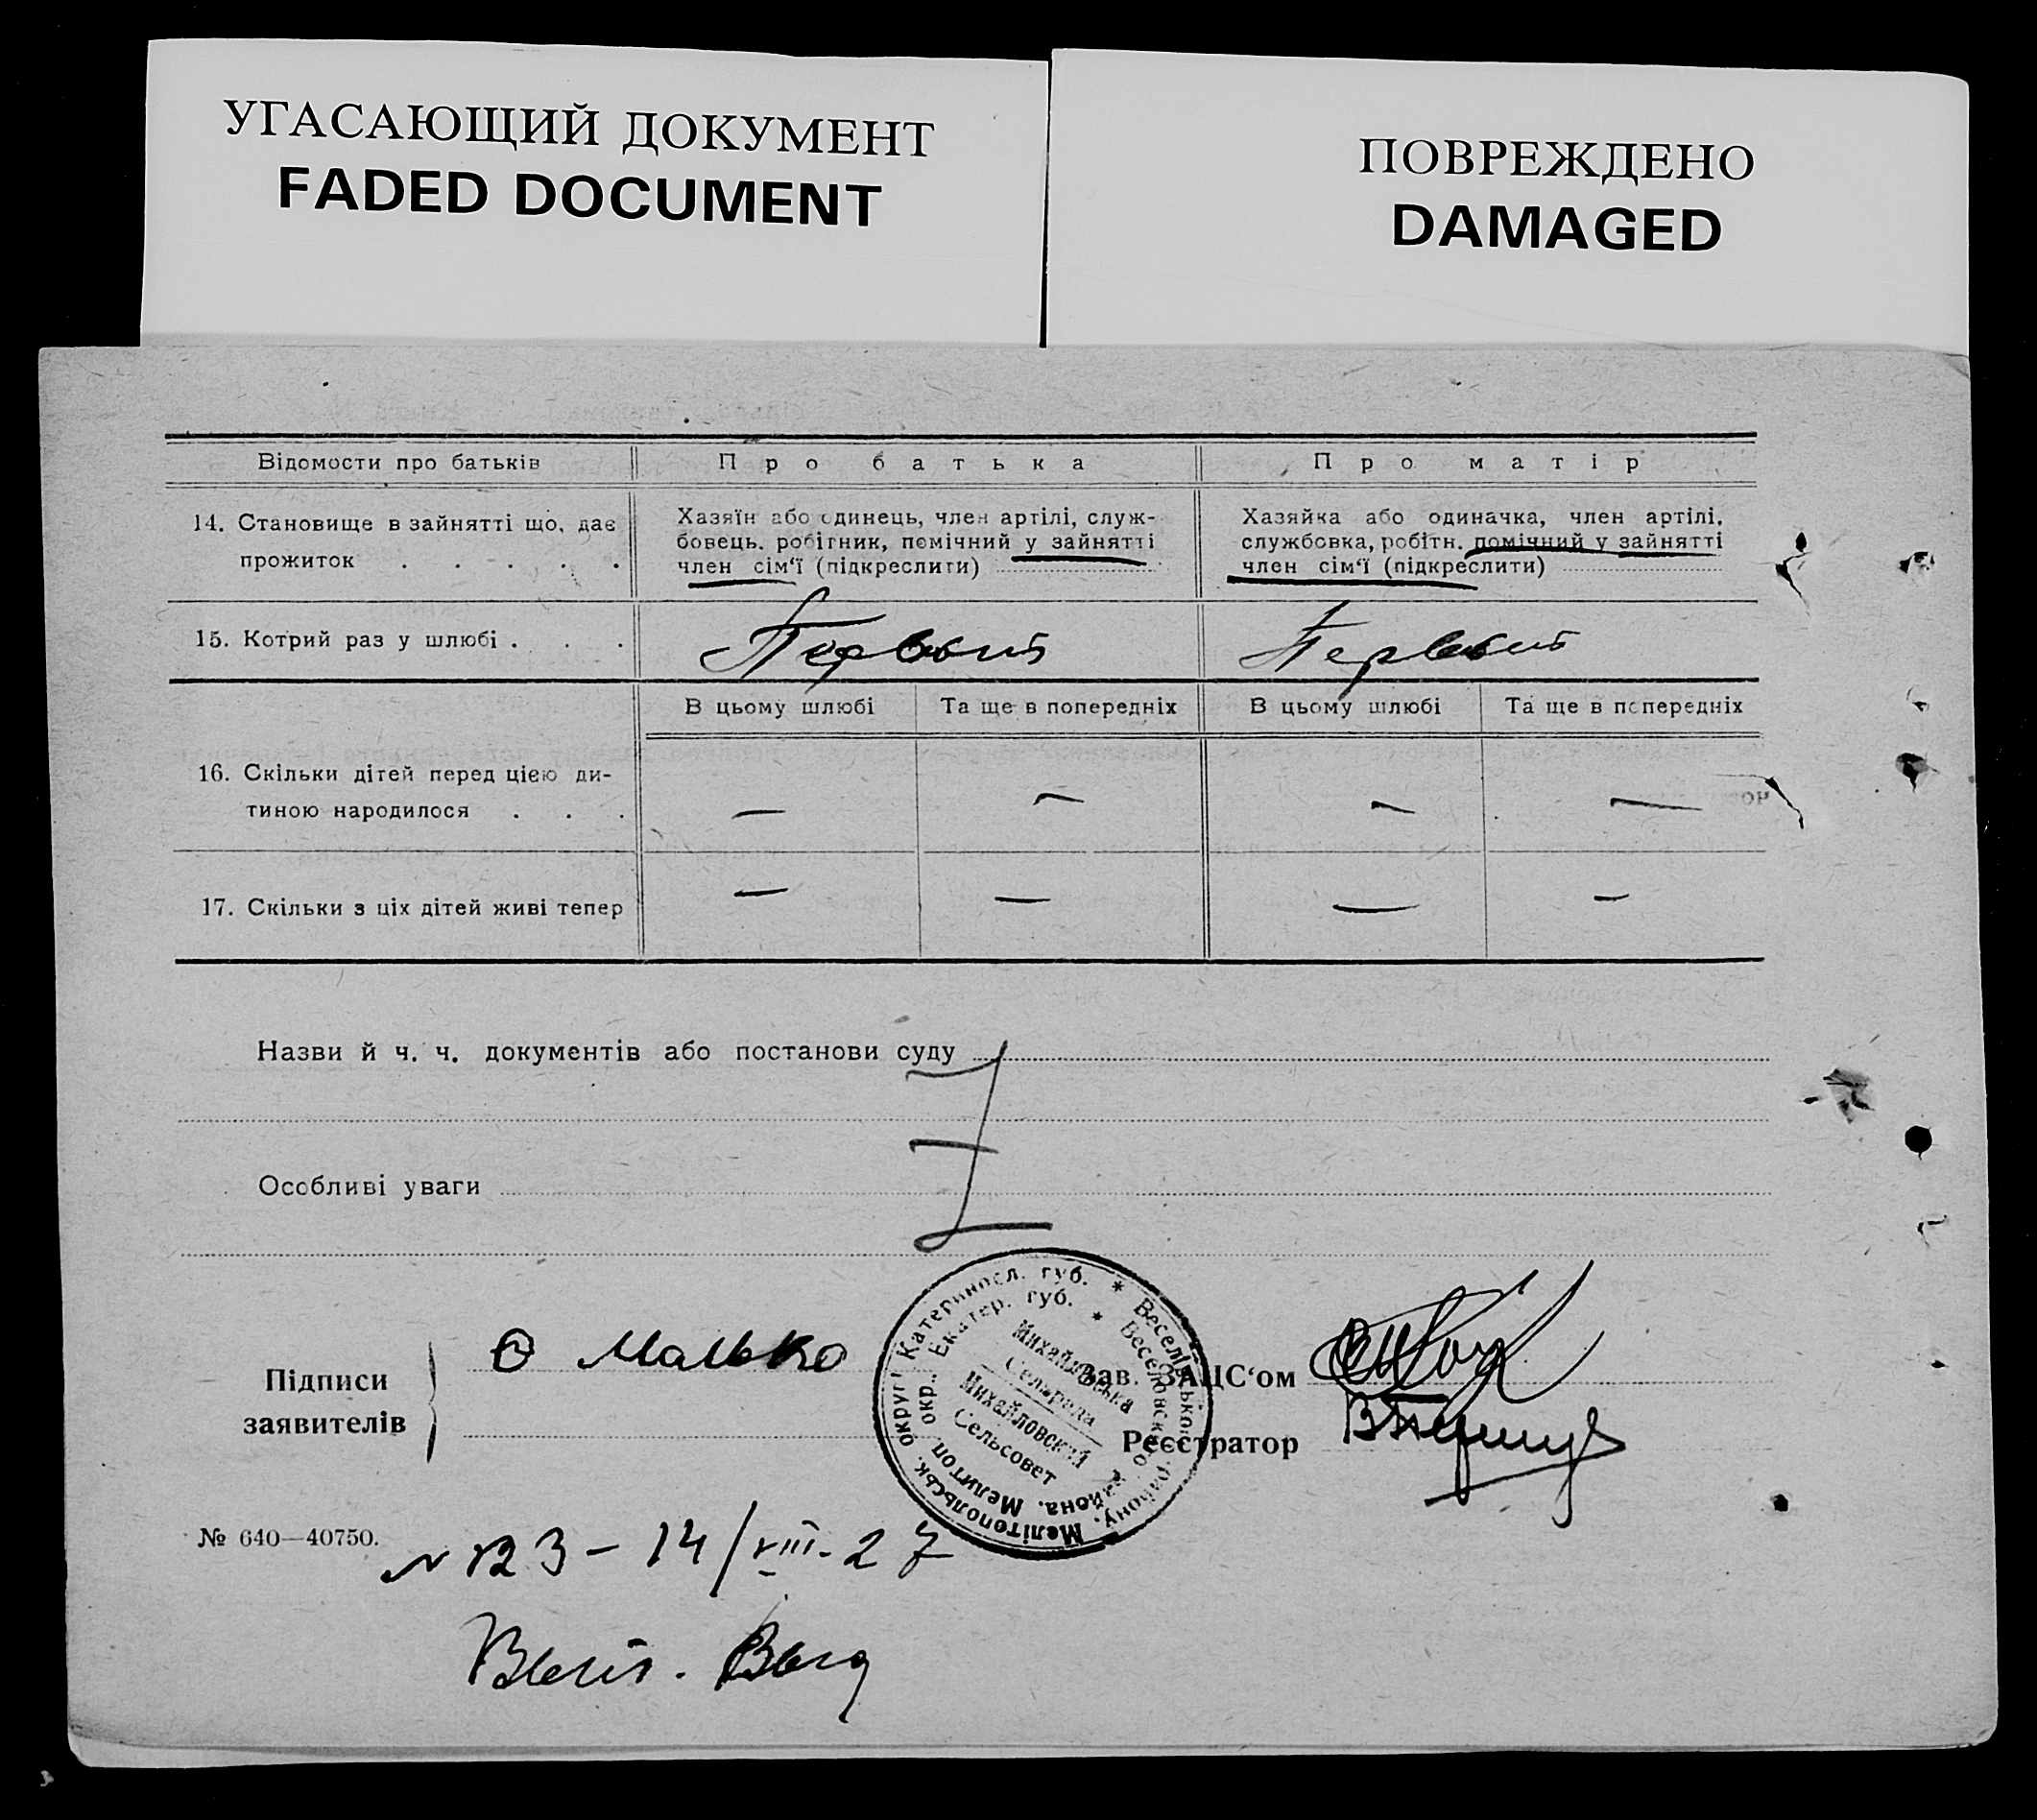 УГАСАЮЩИЙ ДОКУМЕНТ
FADED DOCUMENT
ПОВРЕЖДЕНО
DAMAGED
Відомости про батьків
Про батька
Про матір
14. Становище в зайнятті що, дає
прожиток . . . . .
Хазяїн або одинець, член артілі, служ-
бовець, робітник, помічний у зайнятті
член сім‘ї (підкреслити)
Хазяйка або одиначка, член артілі,
службовка, робітн. помічний у зайнятті
член сім‘ї (підкреслити)
15. Котрий раз у шлюбі . . .
Первый
Первый
В цьому шлюбі
Та ще в попередніх
В цьому шлюбі
Та ще в попередніх
16. Скільки дітей перед цією ди-
тиною народилося . . .
— — — —
17. Скільки з ціх дітей живі тепер
— — — —
Назви й ч. ч. документів або постанови суду
Особливі уваги
Підписи
заявителів
О Малько
Катериносл. губ. * Веселівського району, Мелітопольськ. округи
Екатер. губ. * Веселовского района. Мелитоп. окр.
Михайлівська
Сельрада
Михайловский
Сельсовет
Зав. ЗАЦС‘ом
Реєстратор
№ 640—40750.
N 123 – 14/VIII-27